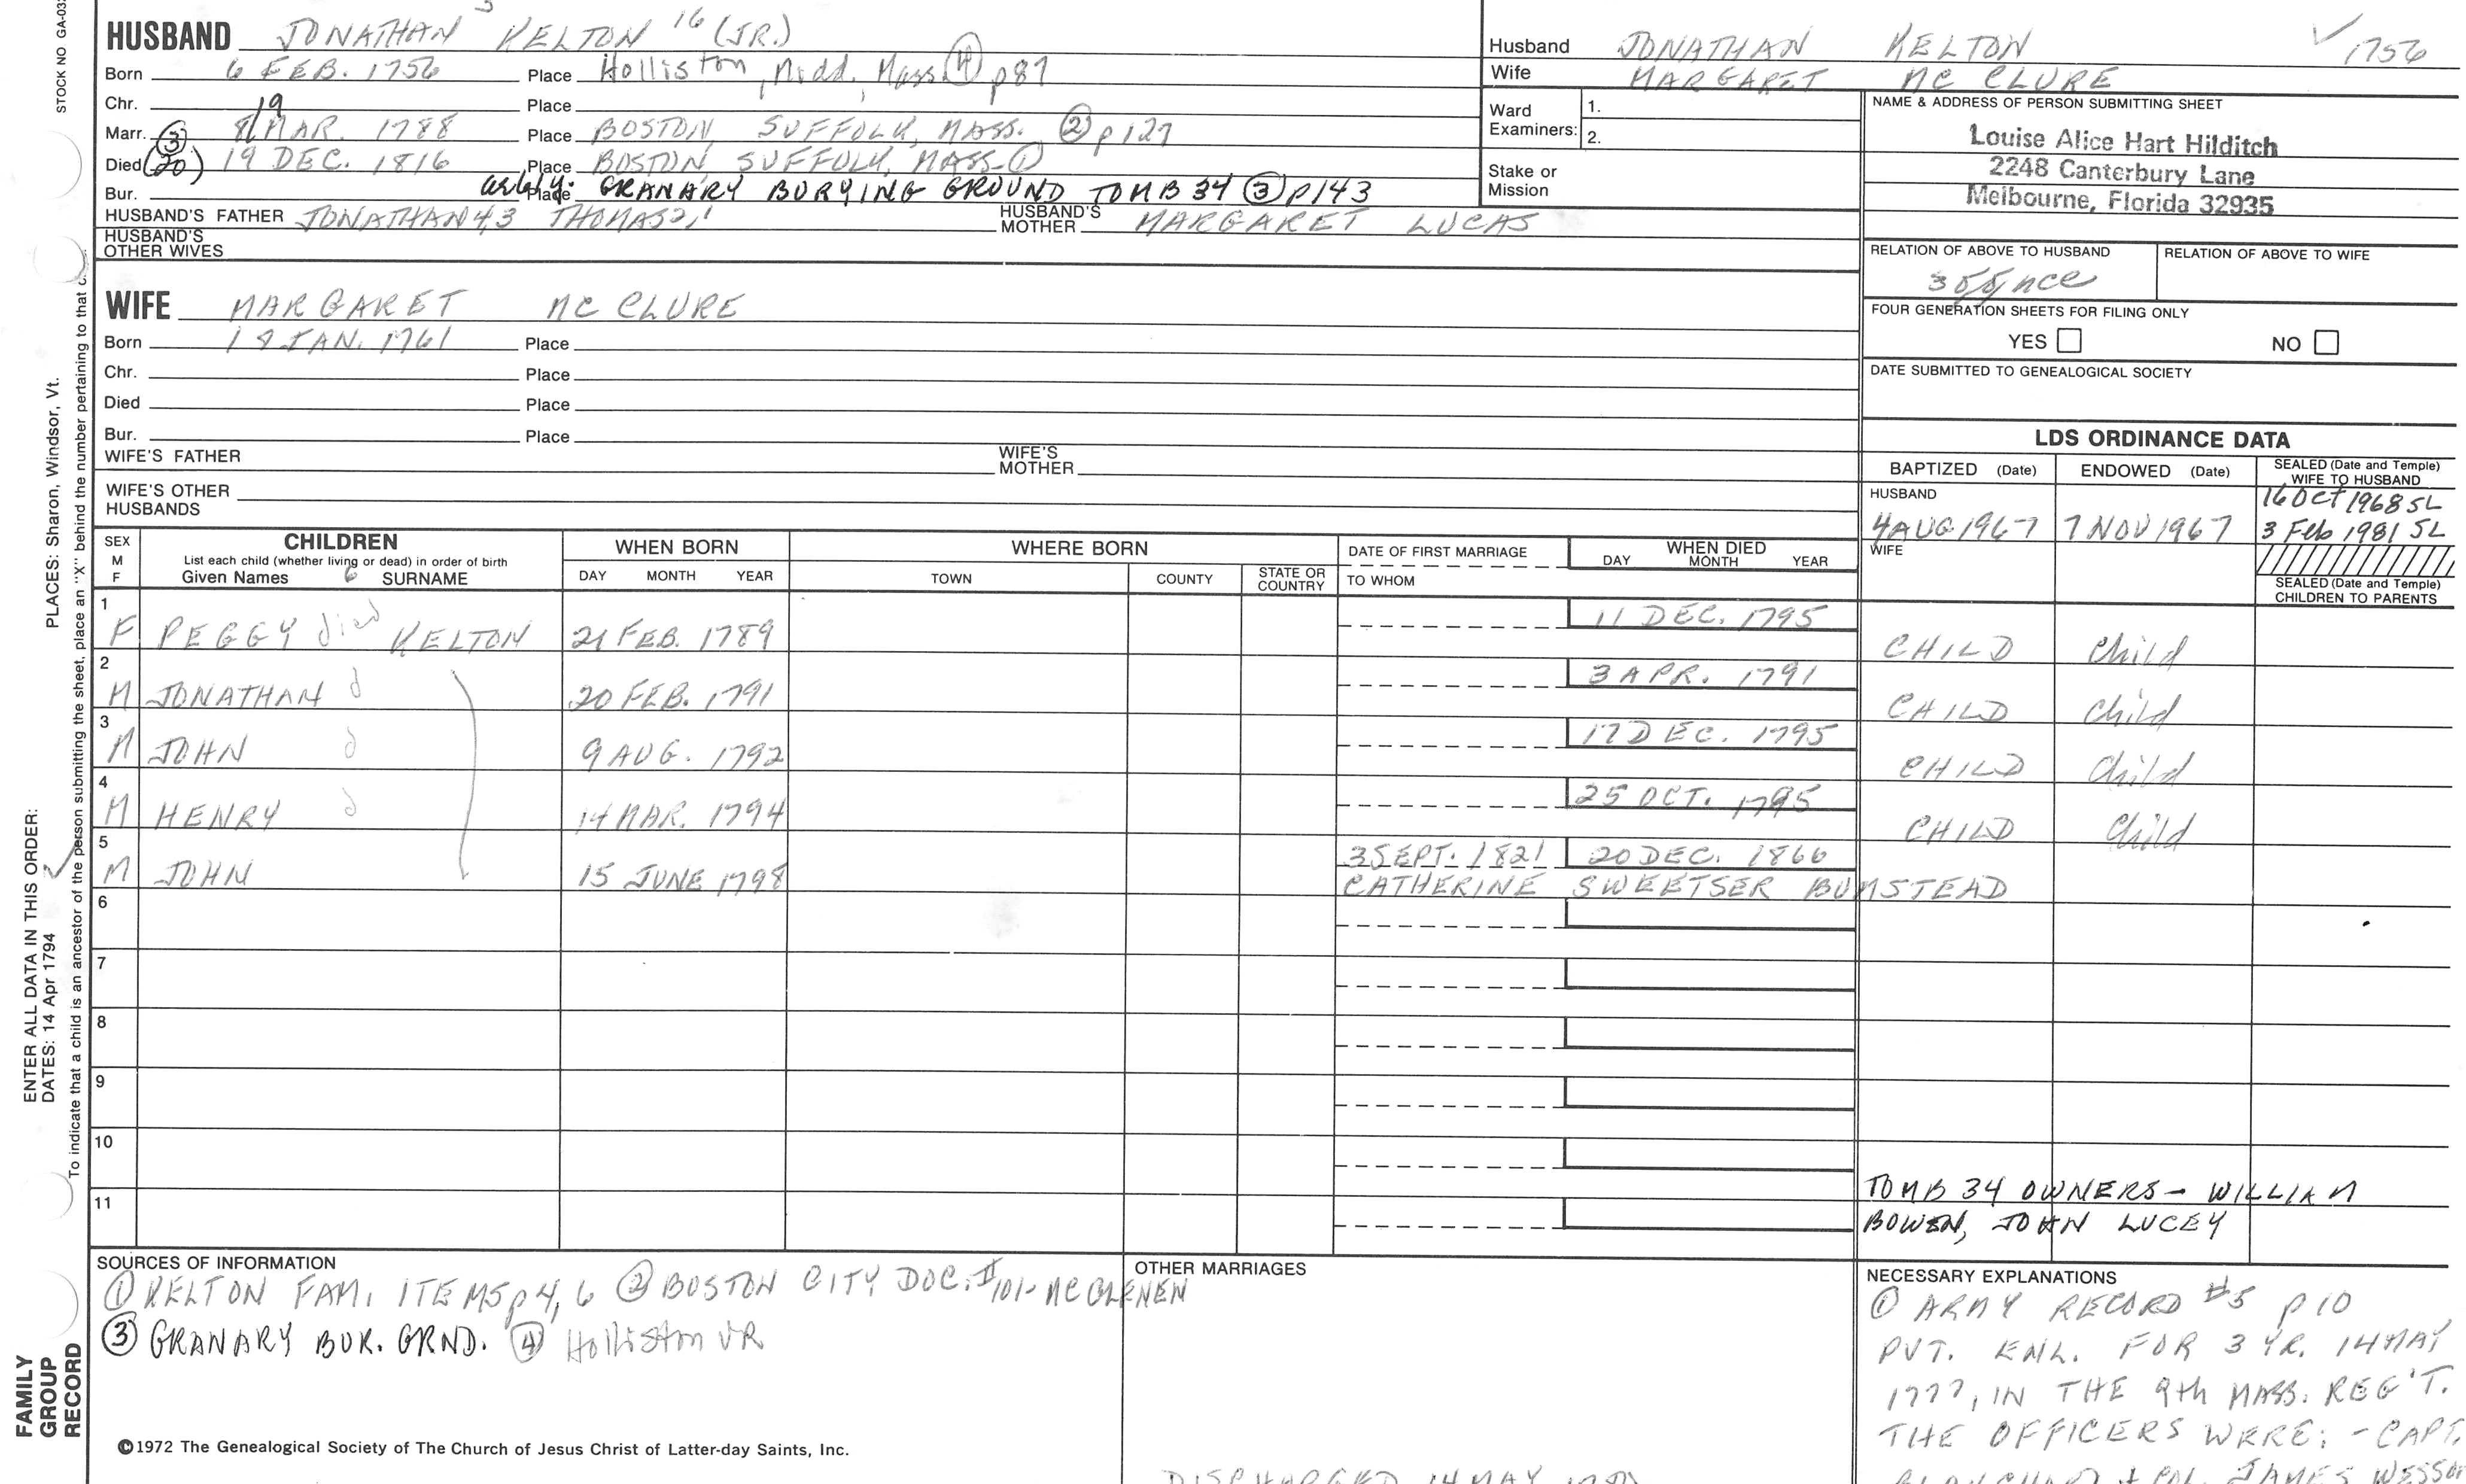 STOCK NO GA-03
HUSBAND JONATHAN 5 KELTON 16 (JR.)
Born 6 FEB. 1756 Place Holliston, Midd. Mass. ④ p87
Chr. Place
Marr. ③ 8/19 MAR. 1788 Place BOSTON, SUFFOLK, MASS. ② p127
Died (20) 19 DEC. 1816 Place BOSTON, SUFFOLK, MASS ①
Bur. Place GRANARY BURYING GROUND TOMB 34 ③ p143
HUSBAND'S FATHER JONATHAN 4,3 THOMAS 2,1 HUSBAND'S MOTHER MARGARET LUCAS
HUSBAND'S OTHER WIVES
WIFE MARGARET MC CLURE
Born 18 JAN. 1761 Place
Chr. Place
Died Place
Bur. Place
WIFE'S FATHER WIFE'S MOTHER
WIFE'S OTHER HUSBANDS
Husband JONATHAN KELTON ✓ 1756
Wife MARGARET MC CLURE
Ward Examiners: 1.
2.
Stake or Mission
NAME & ADDRESS OF PERSON SUBMITTING SHEET
Louise Alice Hart Hilditch
2248 Canterbury Lane
Melbourne, Florida 32935
RELATION OF ABOVE TO HUSBAND RELATION OF ABOVE TO WIFE
FOUR GENERATION SHEETS FOR FILING ONLY
YES NO
DATE SUBMITTED TO GENEALOGICAL SOCIETY
LDS ORDINANCE DATA
BAPTIZED (Date) ENDOWED (Date) SEALED (Date and Temple) WIFE TO HUSBAND
HUSBAND 16 Oct 1968 SL
4 AUG 1967 7 NOV 1967 3 Feb 1981 SL
WIFE
SEALED (Date and Temple) CHILDREN TO PARENTS
SEX M F
CHILDREN
List each child (whether living or dead) in order of birth
Given Names 6 SURNAME
WHEN BORN
DAY MONTH YEAR
WHERE BORN
TOWN COUNTY STATE OR COUNTRY
DATE OF FIRST MARRIAGE
TO WHOM
WHEN DIED
DAY MONTH YEAR
1 F PEGGY died KELTON 21 FEB. 1789 11 DEC. 1795 CHILD Child
2 M JONATHAN d 20 FEB. 1791 3 APR. 1791 CHILD Child
3 M JOHN d 9 AUG. 1792 17 DEC. 1795 CHILD Child
4 M HENRY d 14 MAR. 1794 25 OCT. 1795 CHILD Child
5 M JOHN 15 JUNE 1798 3 SEPT. 1821 20 DEC. 1866
CATHERINE SWEETSER BUMSTEAD
6
7
8
9
10
11
TOMB 34 OWNERS - WILLIAM
BOWEN, JOHN LUCEY
SOURCES OF INFORMATION
① KELTON FAM. ITEMS p4, 6 ② BOSTON CITY DOC. #101- MC GLENEN
③ GRANARY BUR. GRND. ④ Holliston VR
©1972 The Genealogical Society of The Church of Jesus Christ of Latter-day Saints, Inc.
OTHER MARRIAGES
DISCHARGED 14 MAY
NECESSARY EXPLANATIONS
① ARMY RECORD #5 p10
PVT. ENL. FOR 3 YR. 14 MAY
1777, IN THE 9th MASS. REG'T.
THE OFFICERS WERE: - CAPT.
COL. JAMES WESSON
ENTER ALL DATA IN THIS ORDER:
DATES: 14 Apr 1794 PLACES: Sharon, Windsor, Vt.
To indicate that a child is an ancestor of the person submitting the sheet, place an "X" behind the number pertaining to that c
FAMILY
GROUP
RECORD